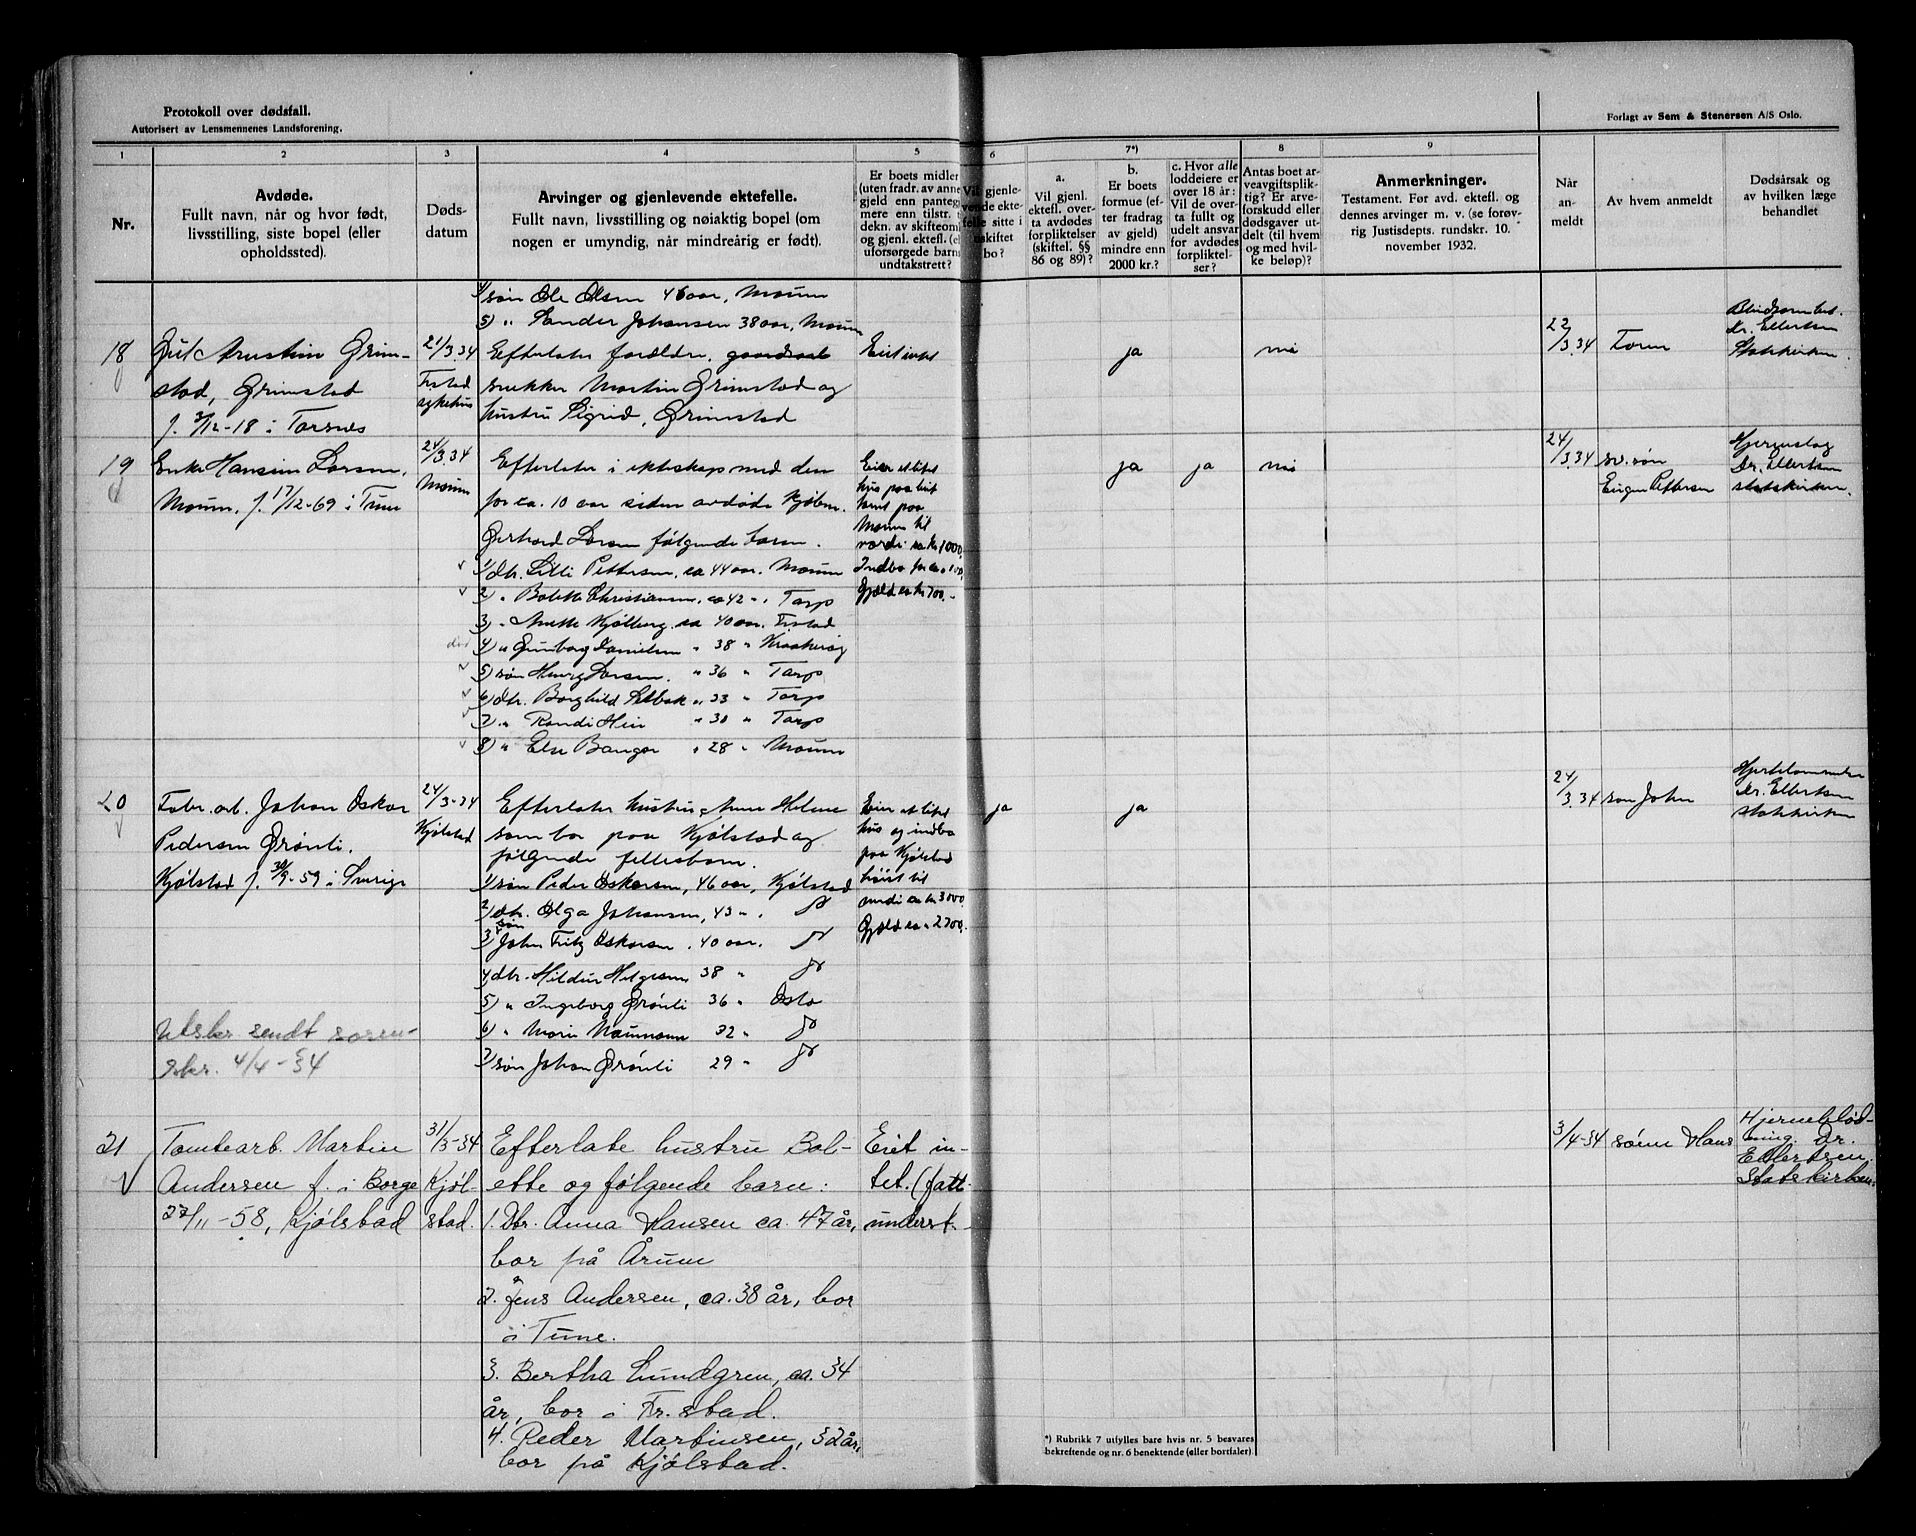 Protokoll over dødsfall.
Autorisert av Lensmennenes Landsforening.
Forlagt av Sem & Stenersen A/S Oslo.
1 2 3 4 5 6 7*) 8 9
Nr.
Avdøde.
Fullt navn, når og hvor født,
livsstilling, siste bopel (eller
opholdssted).
Døds-
datum
Arvinger og gjenlevende ektefelle.
Fullt navn, livsstilling og nøiaktig bopel (om
nogen er umyndig, når mindreårig er født).
Er boets midler
(uten fradr. av anne
gjeld enn pantegj
mere enn tilstr. t
dekn. av skifteom
og gjenl. ektefl. (e
uforsørgede barn
undtakstrett?
Vil gjenle-
vende ekte-
felle sitte i
uskiftet
bo?
a.
Vil gjenl.
ektefl. over-
ta avdødes
forpliktelser
(skiftel. §§
86 og 89)?
b.
Er boets
formue (ef-
ter fradrag
av gjeld)
mindre enn
2000 kr.?
c. Hvor alle
loddeiere er
over 18 år:
Vil de over-
ta fullt og
udelt ansvar
for avdødes
forpliktel-
ser?
Antas boet ar-
veavgiftsplik-
tig? Er arve-
forskudd eller
dødsgaver ut-
delt (til hvem
og med hvil-
ke beløp)?
Anmerkninger.
Testament. Før avd. ektefl. og
dennes arvinger m. v. (se forøv-
rig Justisdepts. rundskr. 10.
november 1932.
Når
an-
meldt
Av hvem anmeldt
Dødsårsak og
av hvilken læge
behandlet
4) søn Ole Olsen 46 aar, Moum
5) " Sander Johansen 38 aar, Moum
18
Grim-
stad, Grimstad
f. 3/12-18 i Torsnes
21/3.34
Frstad
sykehus
Efterlater forældre, gaardsaal
snekker Martin Grimstad og
hustru Sigrid, Grimstad
Eiet intet
ja
nei
22/3.34
Faren
Blindtarmbet.
Dr. Ellertsen
Statskirken.
19
Enke Hansine Larsen,
Moum. f. 17/12-69 i Tune
24/3.34
Moum
Efterlater i ekteskap med den
for ca. 10 aar siden avdøde Kjøbm.
Gerhard Larsen følgende barn.
1) dtr. Lilli Pettersen, ca 44 aar. Moum
2) " Bolette Christiansen, ca 42 " . Torp
3) " Anette Kjølberg ca 40 aar. Frstad
død 4) " Gunborg Danielsen " 38 " Kraakerøy
5) søn Henry Larsen. " 36 " Torp
6) dtr. Borghild Selbak " 33 " Torp
7) " Randi Hein " 30 " Torp
8) " Else Bangor " 28 " Moum
Eier et litet
hus paa leiet
tomt paa
Moum til
værdi ca kr 1000.
Indbo for ca " 100.
Gjæld ca kr 700.-
ja
ja
nei
24/3.34
sv.søn
Eugen Pettersen
Hjerneslag
Dr. Ellertsen
statskirken.
20
Fabr. arb. Johan Oskar
Pedersen Grønli.
Kjølstad f. 30/9-59 i Sverige
24/3-34
Kjølstad
Efterlater hustru Anne Helene
som bor paa Kjølstad og
følgende fellesbarn.
1) søn Peder Oskarsen, 46 aar, Kjølstad
2) dtr. Olga Johansen, 43 " .
søn
3) John Fritz Oskarsen . 40 aar.
4) dtr. Hildur Helgesen 38 "
5) " Ingeborg Grønli 36 " Oslo
6) " Marie Naumann 32 "
7) søn Johan Grønli 29 "
Eier et litet
hus og indbo
paa Kjølstad
høist til
verdi ca kr 3000.
Gjæld ca " 2700.
ja
ja
24/3.34
søn John
Hjertelammelse
Dr. Ellertsen
statskirken
Utskr. sendt soren-
skr. 4/4-34
21
Tomtearb. Martin
Andersen f. i Borge
27/11-58, Kjølstad
31/3-34
Kjøl-
stad.
Efterlate hustru Bol-
ette og følgende barn:
1. Dtr. Anna Hansen ca. 47 år,
bor på Årum
2. Jens Andersen, ca. 38 år, bor
i Tune.
3. Bertha Lundgren, ca. 34
år, bor i Fr.stad.
4. Peder Martinsen, 32 år,
bor på Kjølstad.
Eiet in-
tet. (fatt-
underst.
3/4-34
sønn Hans
Hjerneblød-
ning. Dr.
Ellertsen.
Statskirken.
*) Rubrikk 7 utfylles bare hvis nr. 5 besvares
bekreftende og nr. 6 benektende (eller bortfaler).